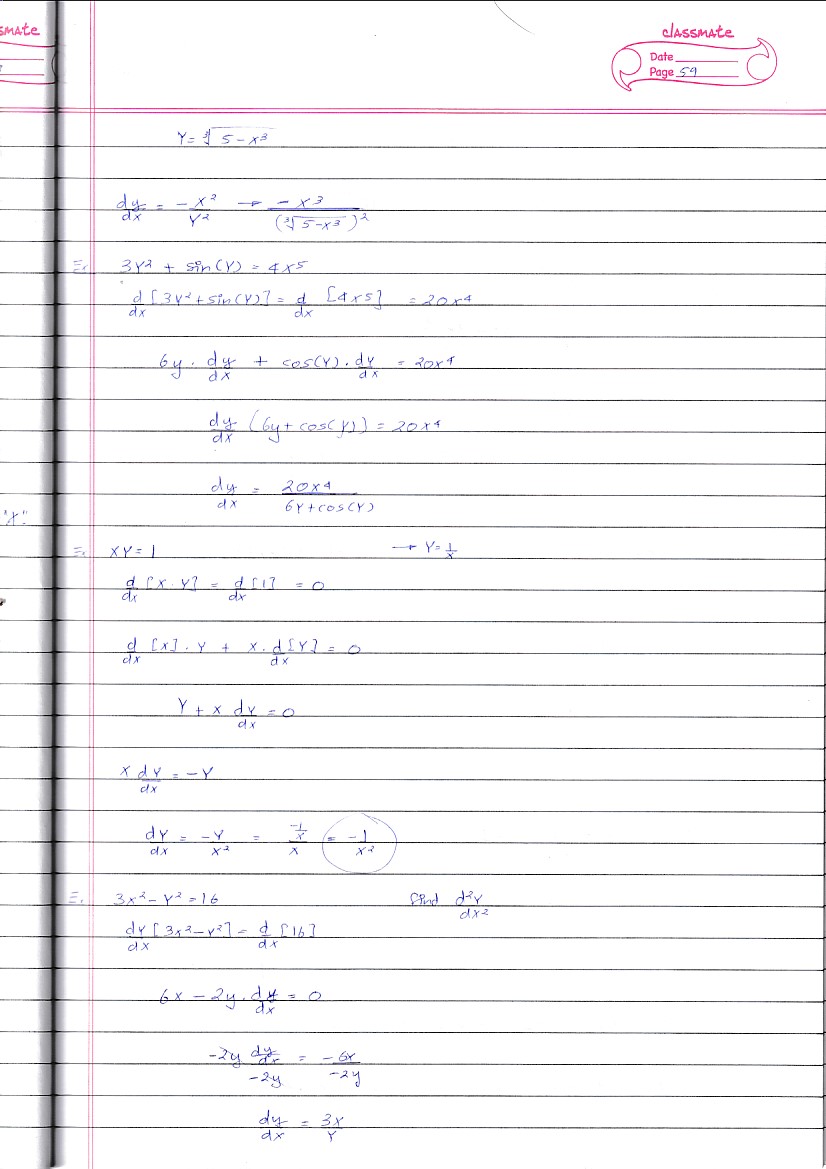 smate
classmate
Date
Page 59
Y = ∛(5 - x³)
dy/dx = -x²/Y² → -x³/(∛(5-x³))²
Ex 3Y² + sin(Y) = 4x⁵
d/dx [3Y² + sin(Y)] = d/dx [4x⁵] = 20x⁴
6y · dy/dx + cos(Y) · dy/dx = 20x⁴
dy/dx (6y + cos(y)) = 20x⁴
dy/dx = 20x⁴/(6Y + cos(Y))
"x"
Ex XY = 1 → Y = 1/x
d/dx [X · Y] = d/dx [1] = 0
d/dx [x] · Y + x · d/dx [Y] = 0
Y + x dY/dx = 0
x dY/dx = -Y
dY/dx = -Y/x² = (-1/x)/x = -1/x²
Ex 3x² - Y² = 16 find d²Y/dx²
dY/dx [3x² - Y²] = d/dx [16]
6x - 2y · dy/dx = 0
-2y dy/dx / -2y = -6x/-2y
dy/dx = 3x/Y